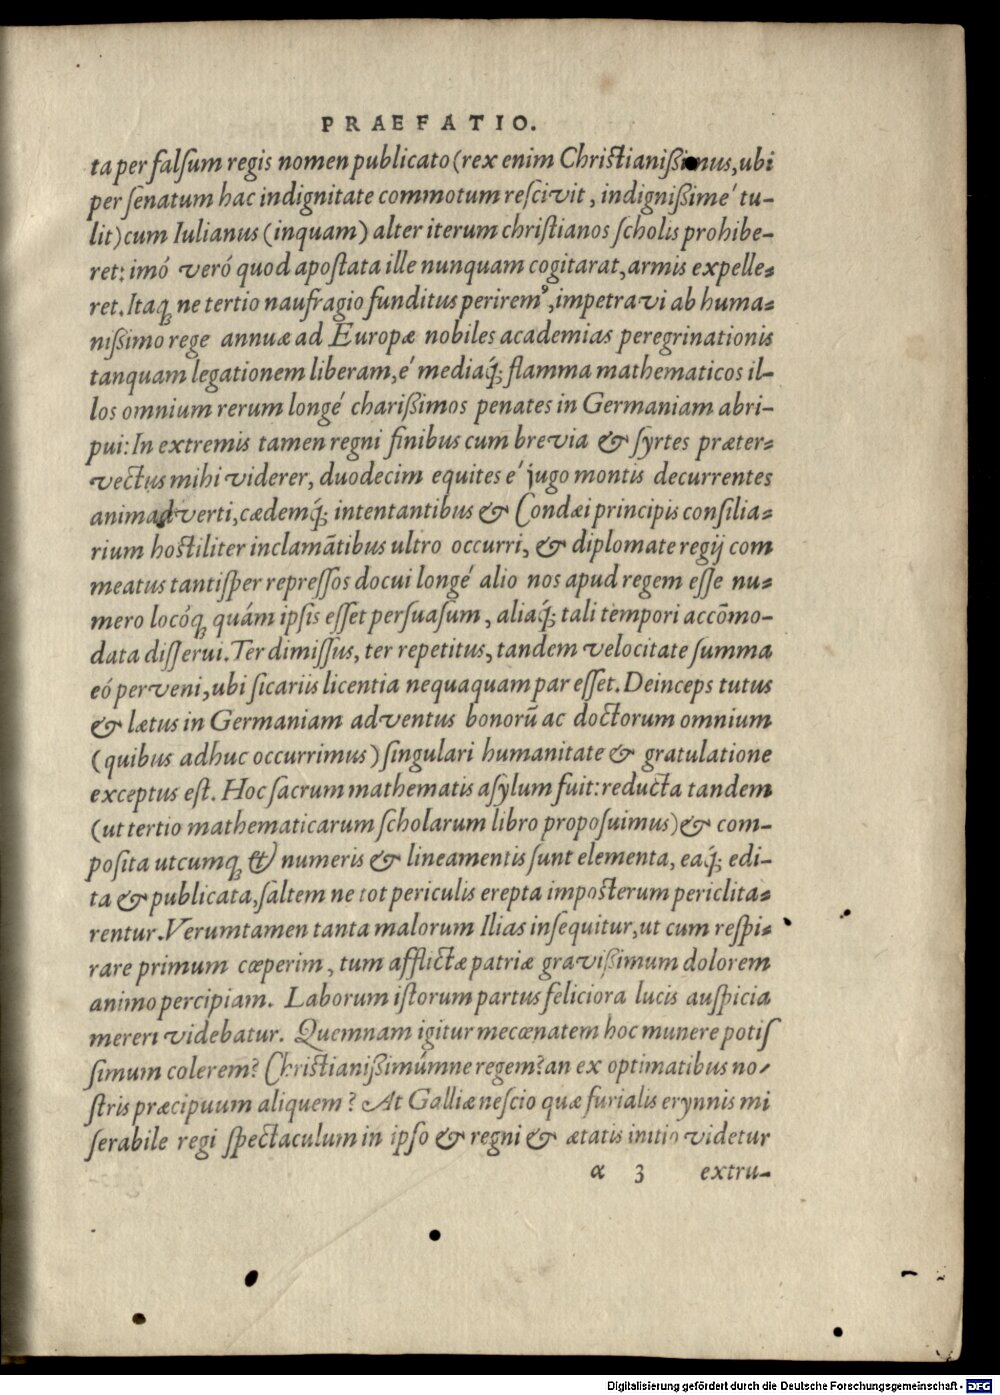 PRAEFATIO.
ta per falsum regis nomen publicato (rex enim Christianißimus, ubi
per senatum hac indignitate commotum rescivit, indignißimé tu-
lit) cum Iulianus (inquam) alter iterum christianos scholis prohibe-
ret: imó veró quod apostata ille nunquam cogitarat, armis expelle-
ret. Itaq; ne tertio naufragio funditus perirem⁹, impetravi ab huma-
nißimo rege annuæ ad Europæ nobiles academias peregrinationis
tanquam legationem liberam, é mediaq́; flamma mathematicos il-
los omnium rerum longé charißimos penates in Germaniam abri-
pui: In extremis tamen regni finibus cum brevia & syrtes præter-
vectus mihi viderer, duodecim equites é jugo montis decurrentes
animadverti, cædemq́; intentantibus & Condæi principis consilia-
rium hostiliter inclamãtibus ultro occurri, & diplomate regij com
meatus tantisper repressos docui longé alio nos apud regem esse nu-
mero locóq; quám ipsis esset persuasum, aliaq́; tali tempori accõmo-
data disserui. Ter dimissus, ter repetitus, tandem velocitate summa
eó perveni, ubi sicariis licentia nequaquam par esset. Deinceps tutus
& lætus in Germaniam adventus bonorũ ac doctorum omnium
(quibus adhuc occurrimus) singulari humanitate & gratulatione
exceptus est. Hoc sacrum mathematis asylum fuit: reducta tandem
(ut tertio mathematicarum scholarum libro proposuimus) & com-
posita utcumq; & numeris & lineamentis sunt elementa, eaq́; edi-
ta & publicata, saltem ne tot periculis erepta imposterum periclita-
rentur. Verumtamen tanta malorum Ilias insequitur, ut cum respi-
rare primum cœperim, tum afflictæ patriæ gravißimum dolorem
animo percipiam. Laborum istorum partus feliciora lucis auspicia
mereri videbatur. Quemnam igitur mecœnatem hoc munere potis
simum colerem? Christianißimúmne regem? an ex optimatibus no-
stris præcipuum aliquem? At Galliæ nescio quæ furialis erynnis mi
serabile regi spectaculum in ipso & regni & ætatis initio videtur
α 3 extru-
Digitalisierung gefördert durch die Deutsche Forschungsgemeinschaft - DFG